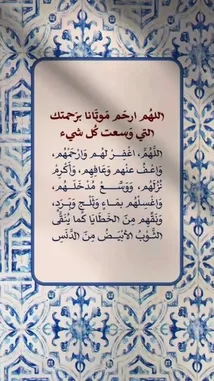 اللهم ارحم موتانا برحمتك
التي وسعت كل شيء
اللَّهُمَّ، اغْفِرْ لهُم وَارْحَمْهُم،
وَاعْفُ عنْهم وَعَافِهِم، وَأَكْرِمْ
نُزُلَهُم، وَوَسِّعْ مُدْخَلَهُم،
وَاغْسِلْهُم بمَاءٍ وَثَلْجٍ وَبَرَدٍ،
وَنَقِّهِم مِنَ الخَطَايَا كما يُنَقَّى
الثَّوْبُ الأبْيَضُ مِنَ الدَّنَسِ